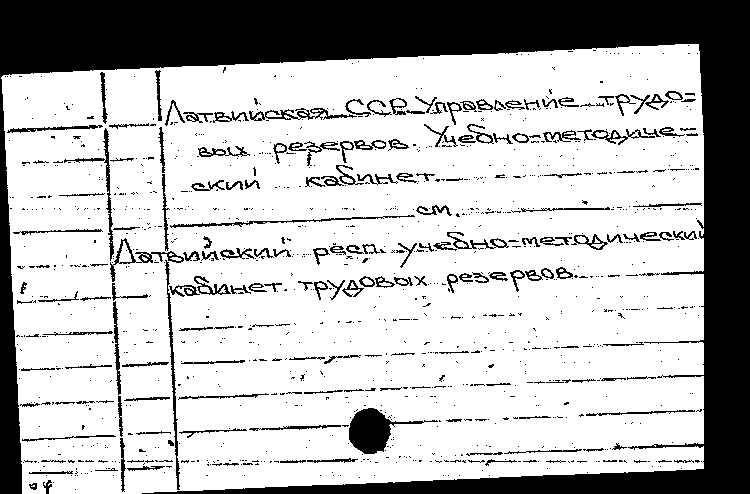 Латвийская ССР. Управление трудо=
вых резервов. Учебно=методиче=
ский кабинет.
см.
Латвийский респ. учебно=методический
кабинет трудовых резервов.